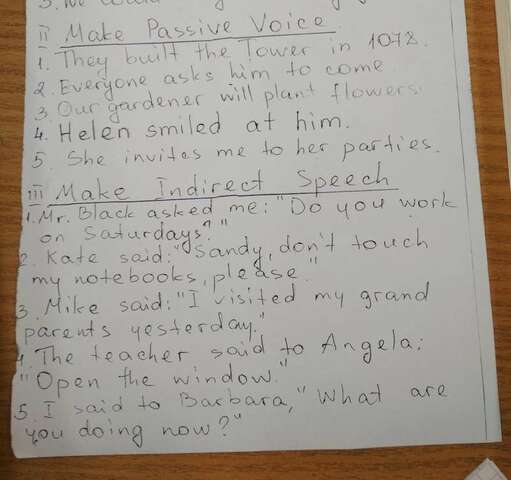 3. We could
II Make Passive Voice
1. They built the Tower in 1078.
2. Everyone asks him to come
3. Our gardener will plant flowers.
4. Helen smiled at him.
5. She invites me to her parties.
III Make Indirect Speech
1. Mr. Black asked me: "Do you work
on Saturdays?"
2. Kate said: "Sandy, don't touch
my notebooks, please."
3. Mike said: "I visited my grand
parents yesterday."
4. The teacher said to Angela:
"Open the window."
5. I said to Barbara, "What are
you doing now?"